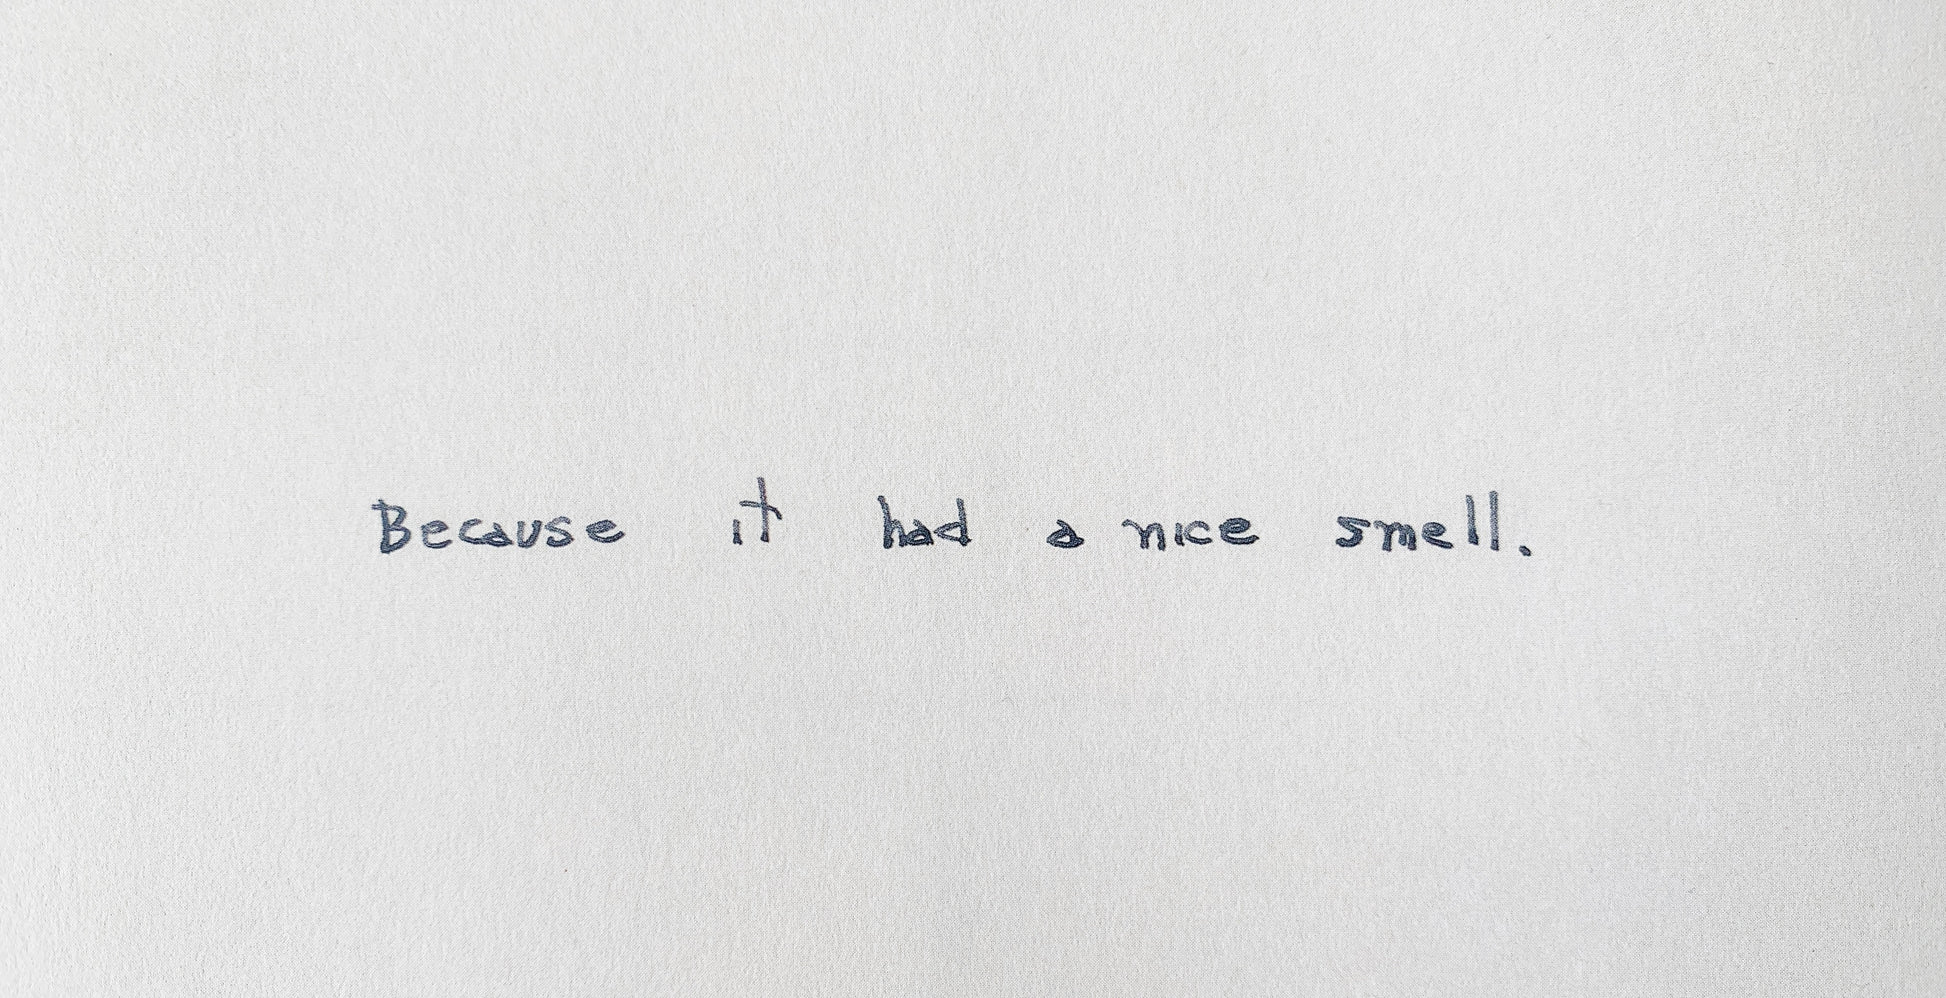 Because it had a nice smell.